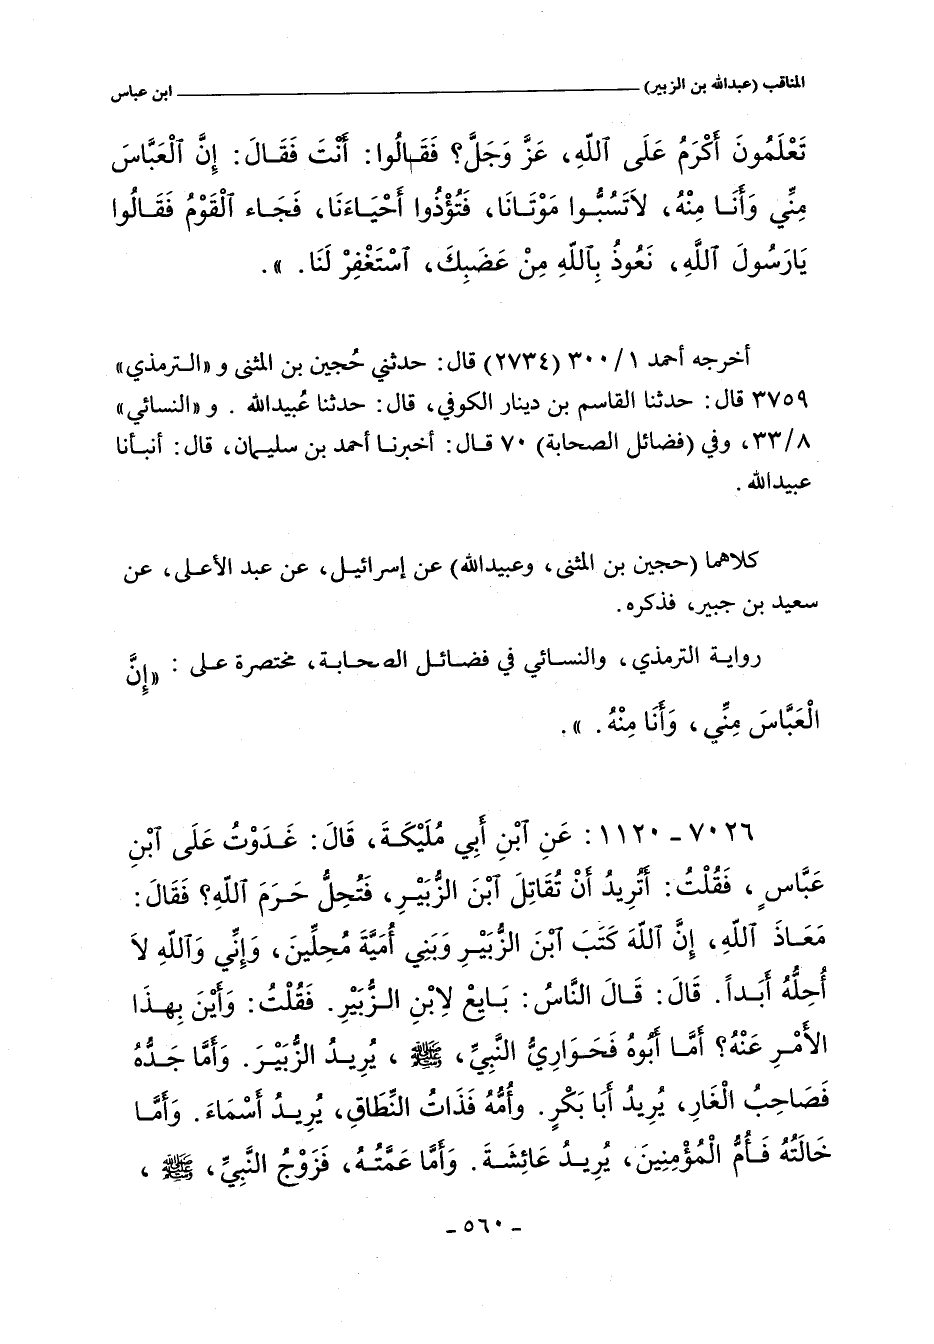 المناقب (عبدالله بن الزبير) ـــــــــــــــــــــــــــــــــ ابن عباس
تَعْلَمُونَ أَكْرَمُ عَلَى ٱللّهِ، عَزَّ وَجَلَّ؟ فَقَالُوا: أَنْتَ فَقَالَ: إِنَّ ٱلْعَبَّاسَ
مِنِّي وَأَنَا مِنْهُ، لَاتَسُبُّوا مَوْتَانَا، فَتُؤْذُوا أَحْيَاءَنَا، فَجَاء ٱلْقَوْمُ فَقَالُوا
يَارَسُولَ ٱللَّهِ، نَعُوذُ بِٱللّهِ مِنْ غَضَبِكَ، ٱسْتَغْفِرْ لَنَا. ».
أخرجه أحمد ١/ ٣٠٠ (٢٧٣٤) قال: حدثني حُجين بن المثنى و «الترمذي»
٣٧٥٩ قال: حدثنا القاسم بن دينار الكوفي، قال: حدثنا عُبيدالله . و «النسائي»
٣٣/٨، وفي (فضائل الصحابة) ٧٠ قال: أخبرنا أحمد بن سليمان، قال: أنبأنا
عبيدالله .
كلاهما (حجين بن المثنى، وعبيدالله) عن إسرائيل، عن عبد الأعلى، عن
سعيد بن جبير، فذكره.
رواية الترمذي، والنسائي في فضائل الصحابة، مختصرة على : «إِنَّ
الْعَبَّاسَ مِنِّي، وَأَنَا مِنْهُ. ».
٧٠٢٦ - ١١٢٠: عَنِ ٱبْنِ أَبِي مُلَيْكَةَ، قَالَ: غَدَوْتُ عَلَى ٱبْنِ
عَبَّاسٍ ، فَقُلْتُ: أَتُرِيدُ أَنْ تُقَاتِلَ ٱبْنَ الزُّبَيْرِ، فَتُحِلُّ حَرَمَ ٱللّهِ؟ فَقَالَ:
مَعَاذَ ٱللّهِ، إِنَّ ٱللّهَ كَتَبَ ٱبْنَ الزُّبَيْرِ وَبَنِي أُمَيَّةَ مُحِلِّينَ، وَإِنِّي وَٱللّهِ لاَ
أُحِلُّهُ أَبَداً. قَالَ: قَالَ النَّاسُ: بَايِعْ لِابْنِ الزُّبَيْرِ. فَقُلْتُ: وَأَيْنَ بِهذَا
الأَمْرِ عَنْهُ؟ أَمَّا أَبُوهُ فَحَوَارِيُّ النَّبِيِّ، ﷺ ، يُرِيدُ الزُّبَيْرَ. وَأَمَّا جَدُّهُ
فَصَاحِبُ الْغَارِ، يُرِيدُ أَبَا بَكْرٍ. وأُمُّهُ فَذَاتُ النِّطَاقِ، يُرِيدُ أَسْمَاءَ. وَأَمَّا
خَالَتُهُ فَأُمُّ الْمُؤْمِنِينَ، يُرِيدُ عَائِشَةَ. وَأَمَّا عَمَّتُهُ، فَزَوْجُ النَّبِيِّ، ﷺ ،
- ٥٦٠ -